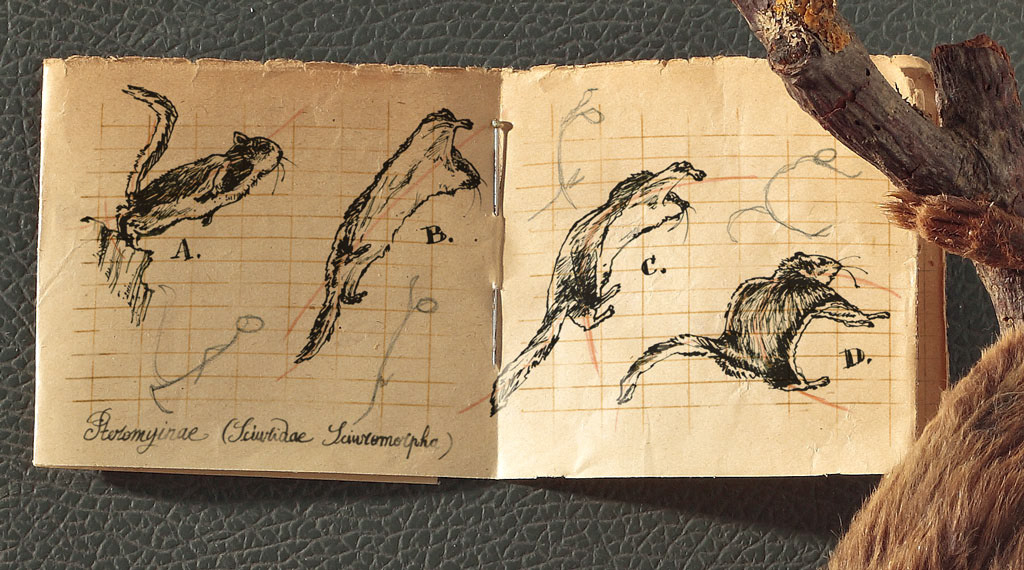 A.
B.
C.
D.
Pteromyinae (Sciuridae Sciuromorpha)